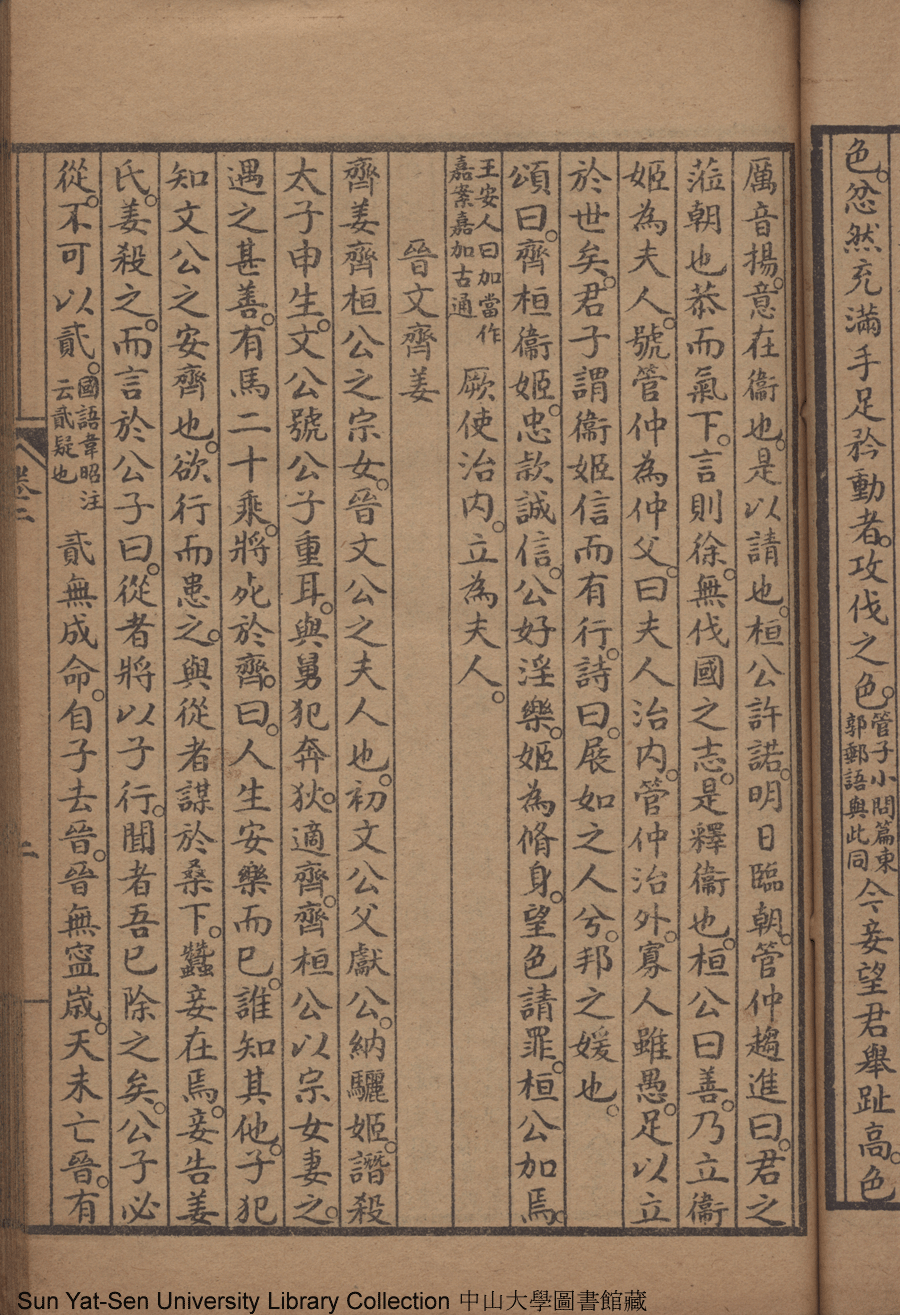 色。忿然充滿手足矜動者。攻伐之色。管子小問篇東郭郵語與此同今妾望君舉趾高。色
厲音揚。意在衞也。是以請也。桓公許諾。明日臨朝。管仲趨進曰。君之
蒞朝也恭而氣下。言則徐。無伐國之志。是釋衞也。桓公曰善。乃立衞
姬為夫人。號管仲為仲父。曰夫人治內。管仲治外。寡人雖愚。足以立
於世矣。君子謂衞姬信而有行。詩曰。展如之人兮。邦之媛也。
頌曰。齊桓衞姬。忠款誠信。公好淫樂。姬為脩身。望色請罪。桓公加焉。
王安人曰加當作嘉案嘉加古通厥使治內。立為夫人。
晉文齊姜
齊姜齊桓公之宗女。晉文公之夫人也。初文公父獻公。納驪姬。譖殺
太子申生。文公號公子重耳。與舅犯奔狄。適齊。齊桓公以宗女妻之。
遇之甚善。有馬二十乘。將死於齊。曰。人生安樂而已。誰知其他。子犯
知文公之安齊也。欲行而患之。與從者謀於桑下。蠶妾在焉。妾告姜
氏。姜殺之。而言於公子曰。從者將以子行。聞者吾已除之矣。公子必
從。不可以貳。國語韋昭注云貳疑也貳無成命。自子去晉。晉無寧歲。天未亡晉。有
卷二
二
Sun Yat-Sen University Library Collection 中山大學圖書館藏